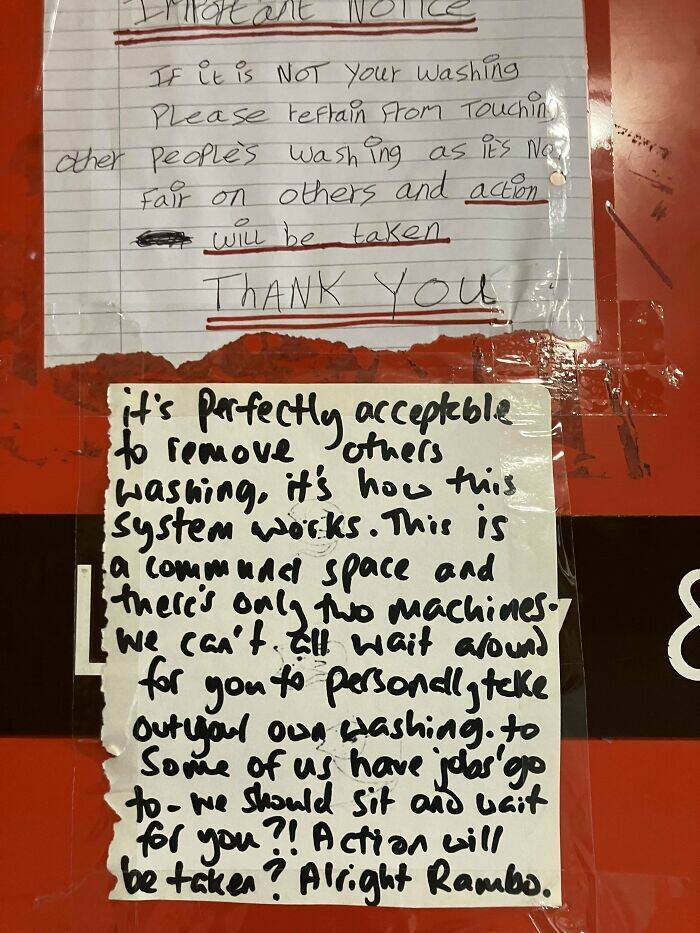 IMPORTANT NOTICE
IF it is NOT your washing
PLease refrain from Touchin
other people's washing as it's No
Fair on others and action
will be taken
THANK YOU
it's perfectly acceptable
to remove others
washing, it's how this
system works. This is
a communal space and
there's only two machines.
We can't all wait around
for you to personally take
out your own washing. to
Some of us have jobs go
to - we should sit and wait
for you?! Action will
be taken? Alright Rambo.
L y &